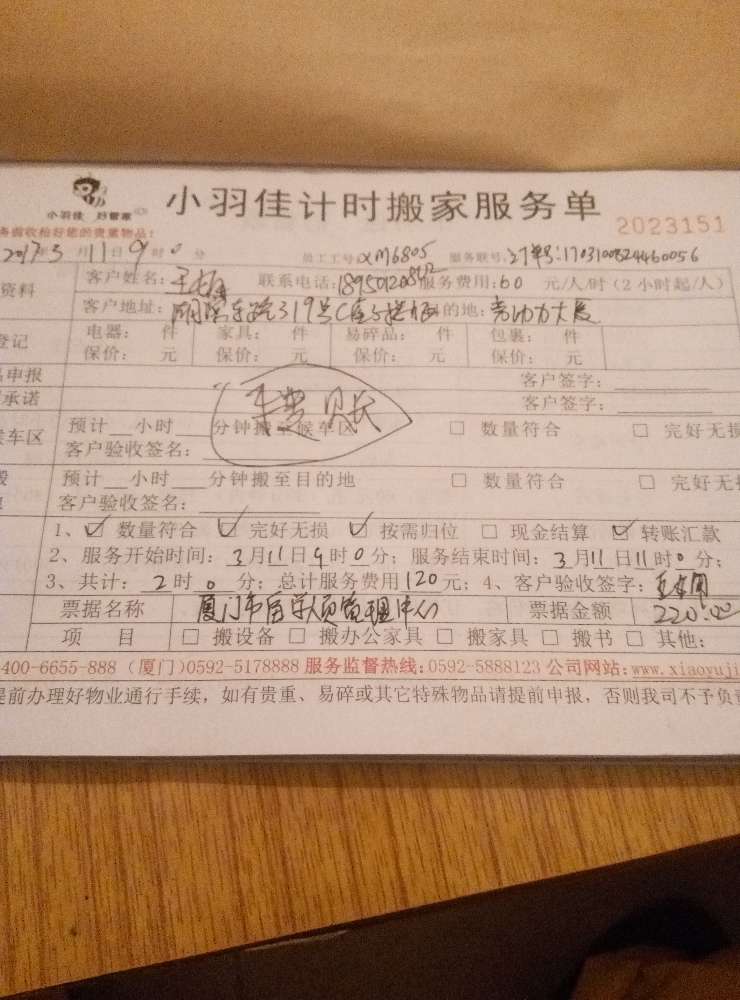 小羽佳 好管家
小羽佳计时搬家服务单
2023151
务前收拾好您的贵重物品:
2017年3月11日9时0分 员工工号XM6805 服务联号:订单号:1703100824460056
资料 客户姓名: 联系电话: 服务费用:60 元/人/时(2小时起/人)
客户地址: 319号C 目的地: 劳动力大厦
登记 电器: 件 家具: 件 易碎品: 件 包裹: 件
保价: 元 保价: 元 保价: 元 保价: 元
品申报 客户签字:
承诺 客户签字:
候车区 预计__小时__分钟搬至候车区 □ 数量符合 □ 完好无损
客户验收签名:
预计__小时__分钟搬至目的地 □ 数量符合 □ 完好无损
客户验收签名:
1、☑ 数量符合 ☑ 完好无损 ☑ 按需归位 □ 现金结算 ☑ 转账汇款
2、服务开始时间: 3月11日9时0分; 服务结束时间: 3月11日11时0分;
3、共计: 2时0分; 总计服务费用120元; 4、客户验收签字:
票据名称 厦门市 管理中心 票据金额 220.00
项 目 □ 搬设备 □ 搬办公家具 □ 搬家具 □ 搬书 □ 其他:
400-6655-888 (厦门)0592-5178888 服务监督热线:0592-5888123 公司网站:www.xiaoyuji
提前办理好物业通行手续,如有贵重、易碎或其它特殊物品请提前申报,否则我司不予负责